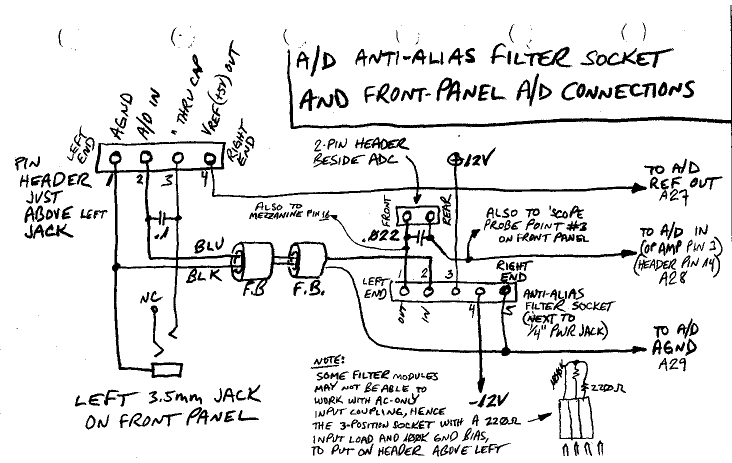 A/D ANTI-ALIAS FILTER SOCKET
AND FRONT-PANEL A/D CONNECTIONS
LEFT END
AGND
A/D IN
" THRU CAP
VREF(+5V) OUT
RIGHT END
PIN
HEADER
JUST
ABOVE LEFT
JACK
1
2
3
4
.1
2-PIN HEADER
BESIDE ADC
FRONT
REAR
+12V
ALSO TO
MEZZANINE PIN 16
.022
TO A/D
REF OUT
A27
ALSO TO 'SCOPE
PROBE POINT #3
ON FRONT PANEL
TO A/D IN
(OP AMP PIN 3)
(HEADER PIN 14)
A28
BLU
BLK
F.B.
F.B.
NC
LEFT END
1
2
3
4
5
OUT
IN
RIGHT
END
ANTI-ALIAS
FILTER SOCKET
(NEXT TO
1/4" PWR JACK)
TO A/D
AGND
A29
-12V
LEFT 3.5mm JACK
ON FRONT PANEL
NOTE:
SOME FILTER MODULES
MAY NOT BE ABLE TO
WORK WITH AC-ONLY
INPUT COUPLING, HENCE
THE 3-POSITION SOCKET WITH A 220Ω
INPUT LOAD AND 100K GND BIAS,
TO PUT ON HEADER ABOVE LEFT
100K
220Ω